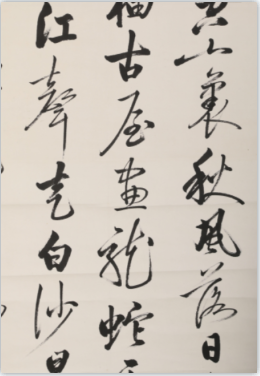 山裏秋風落日
柚古屋畫龍蛇
江聲走白沙